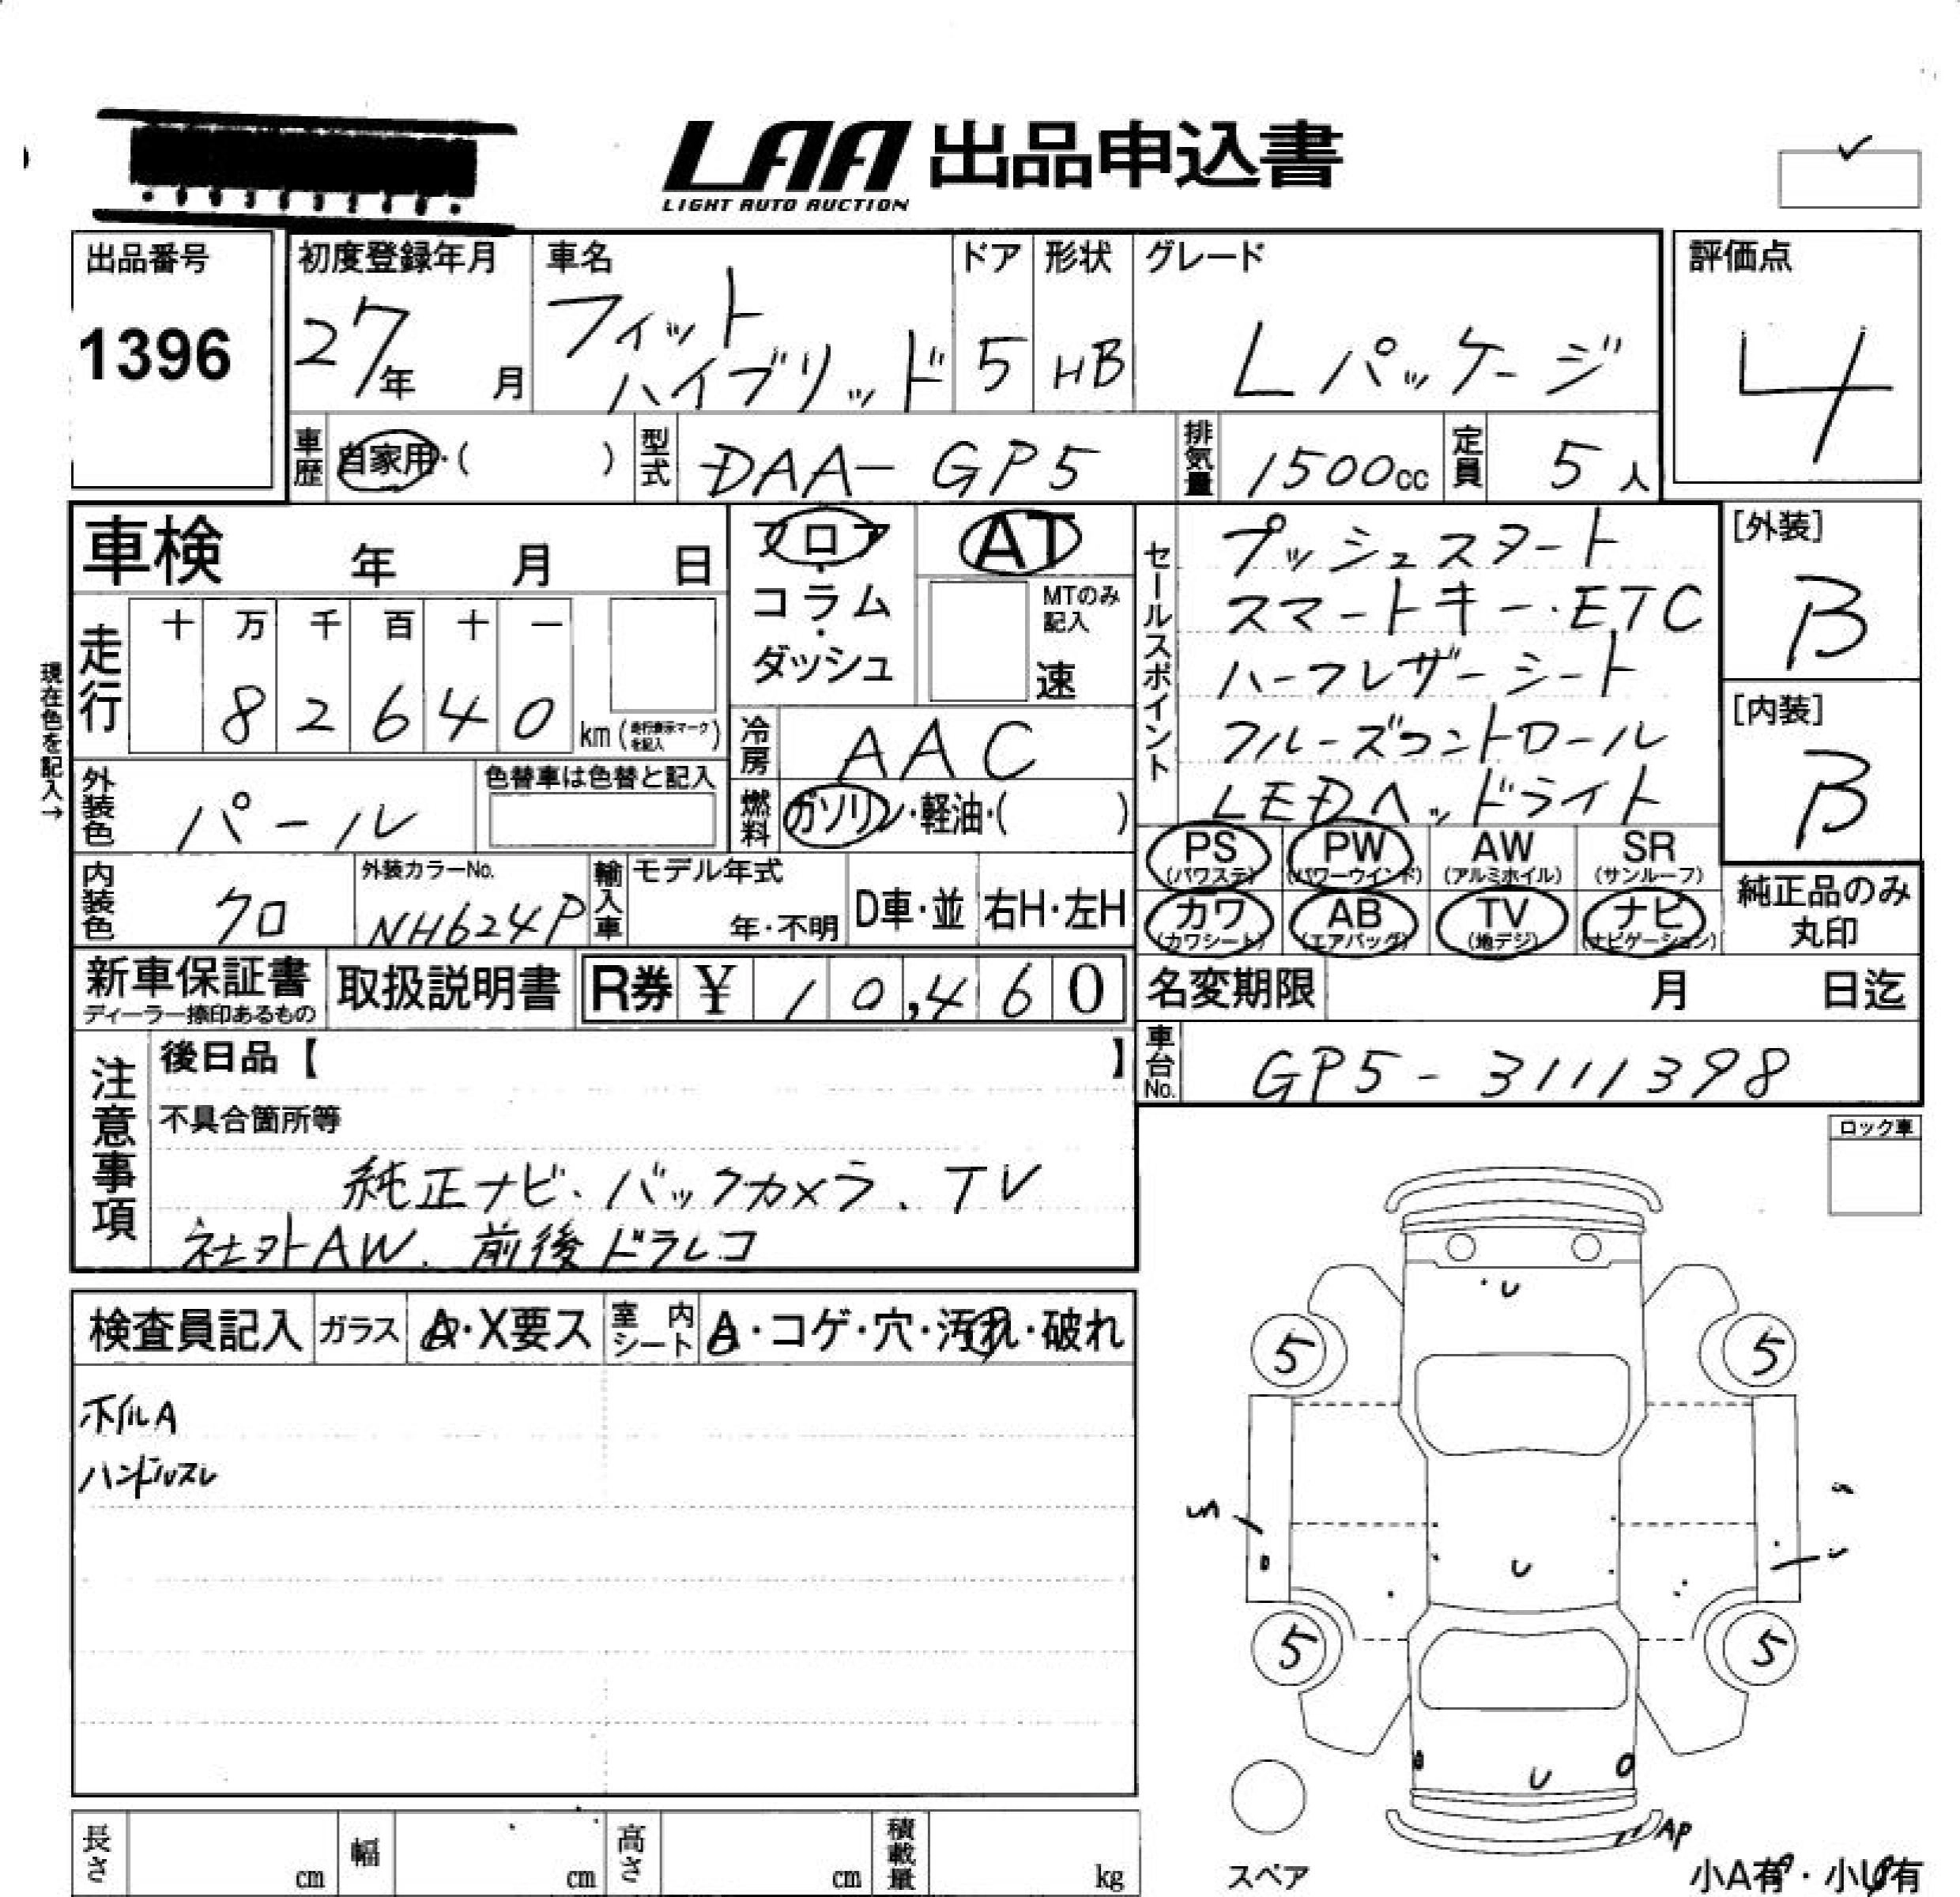 LAA 出品申込書
LIGHT AUTO AUCTION
出品番号
1396
初度登録年月
27年 月
車名
フィット
ハイブリッド
ドア
5
形状
HB
グレード
Lパッケージ
評価点
4
車歴
自家用・( )
型式
DAA-GP5
排気量
1500cc
定員
5人
車検 年 月 日
フロア
・
コラム
・
ダッシュ
AT
MTのみ
記入
速
セールスポイント
プッシュスタート
スマートキー・ETC
ハーフレザーシート
クルーズコントロール
LEDヘッドライト
[外装]
B
[内装]
B
現在色を記入→
走行
十 万 千 百 十 一
8 2 6 4 0
km(走行表示マークを記入)
冷房
AAC
外装色
パール
色替車は色替と記入
燃料
ガソリン・軽油・( )
PS
(パワステ)
PW
(パワーウインド)
AW
(アルミホイル)
SR
(サンルーフ)
カワ
(カワシート)
AB
(エアバッグ)
TV
(地デジ)
ナビ
(ナビゲーション)
純正品のみ
丸印
内装色
クロ
外装カラーNo.
NH624P
輸入車
モデル年式
年・不明
D車・並
右H・左H
新車保証書
ディーラー捺印あるもの
取扱説明書
R券 ¥ 10,460
名変期限 月 日迄
車台No.
GP5-3111398
注意事項
後日品【 】
不具合箇所等
純正ナビ、バックカメラ、TV
社外AW、前後ドラレコ
ロック車
検査員記入
ガラス
A・X要ス
室内シート
A・コゲ・穴・汚れ・破れ
ホイルA
ハンドルスレ
5
5
5
5
U
U
U
AP
スペア
小A有・小U有
長さ cm
幅 cm
高さ cm
積載量 kg